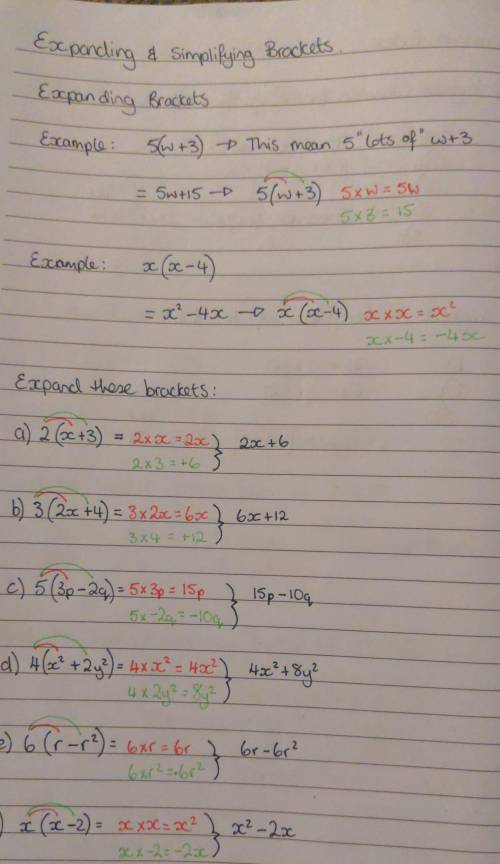 Expanding & Simplifying Brackets.
Expanding Brackets
Example: 5(w+3) → This mean 5 "lots of" w+3
= 5w+15 → 5(w+3) 5×w = 5w
5×3 = 15
Example: x(x-4)
= x² - 4x → x(x-4) x × x = x²
x × -4 = -4x
Expand these brackets:
a) 2(x+3) = 2×x = 2x } 2x+6
2×3 = +6
b) 3(2x+4) = 3×2x = 6x } 6x+12
3×4 = +12
c) 5(3p-2q) = 5×3p = 15p } 15p-10q
5×-2q = -10q
d) 4(x²+2y²) = 4×x² = 4x² } 4x²+8y²
4×2y² = 8y²
e) 6(r-r²) = 6×r = 6r } 6r-6r²
6×r² = -6r²
) x(x-2) = x×x = x² } x²-2x
x×-2 = -2x